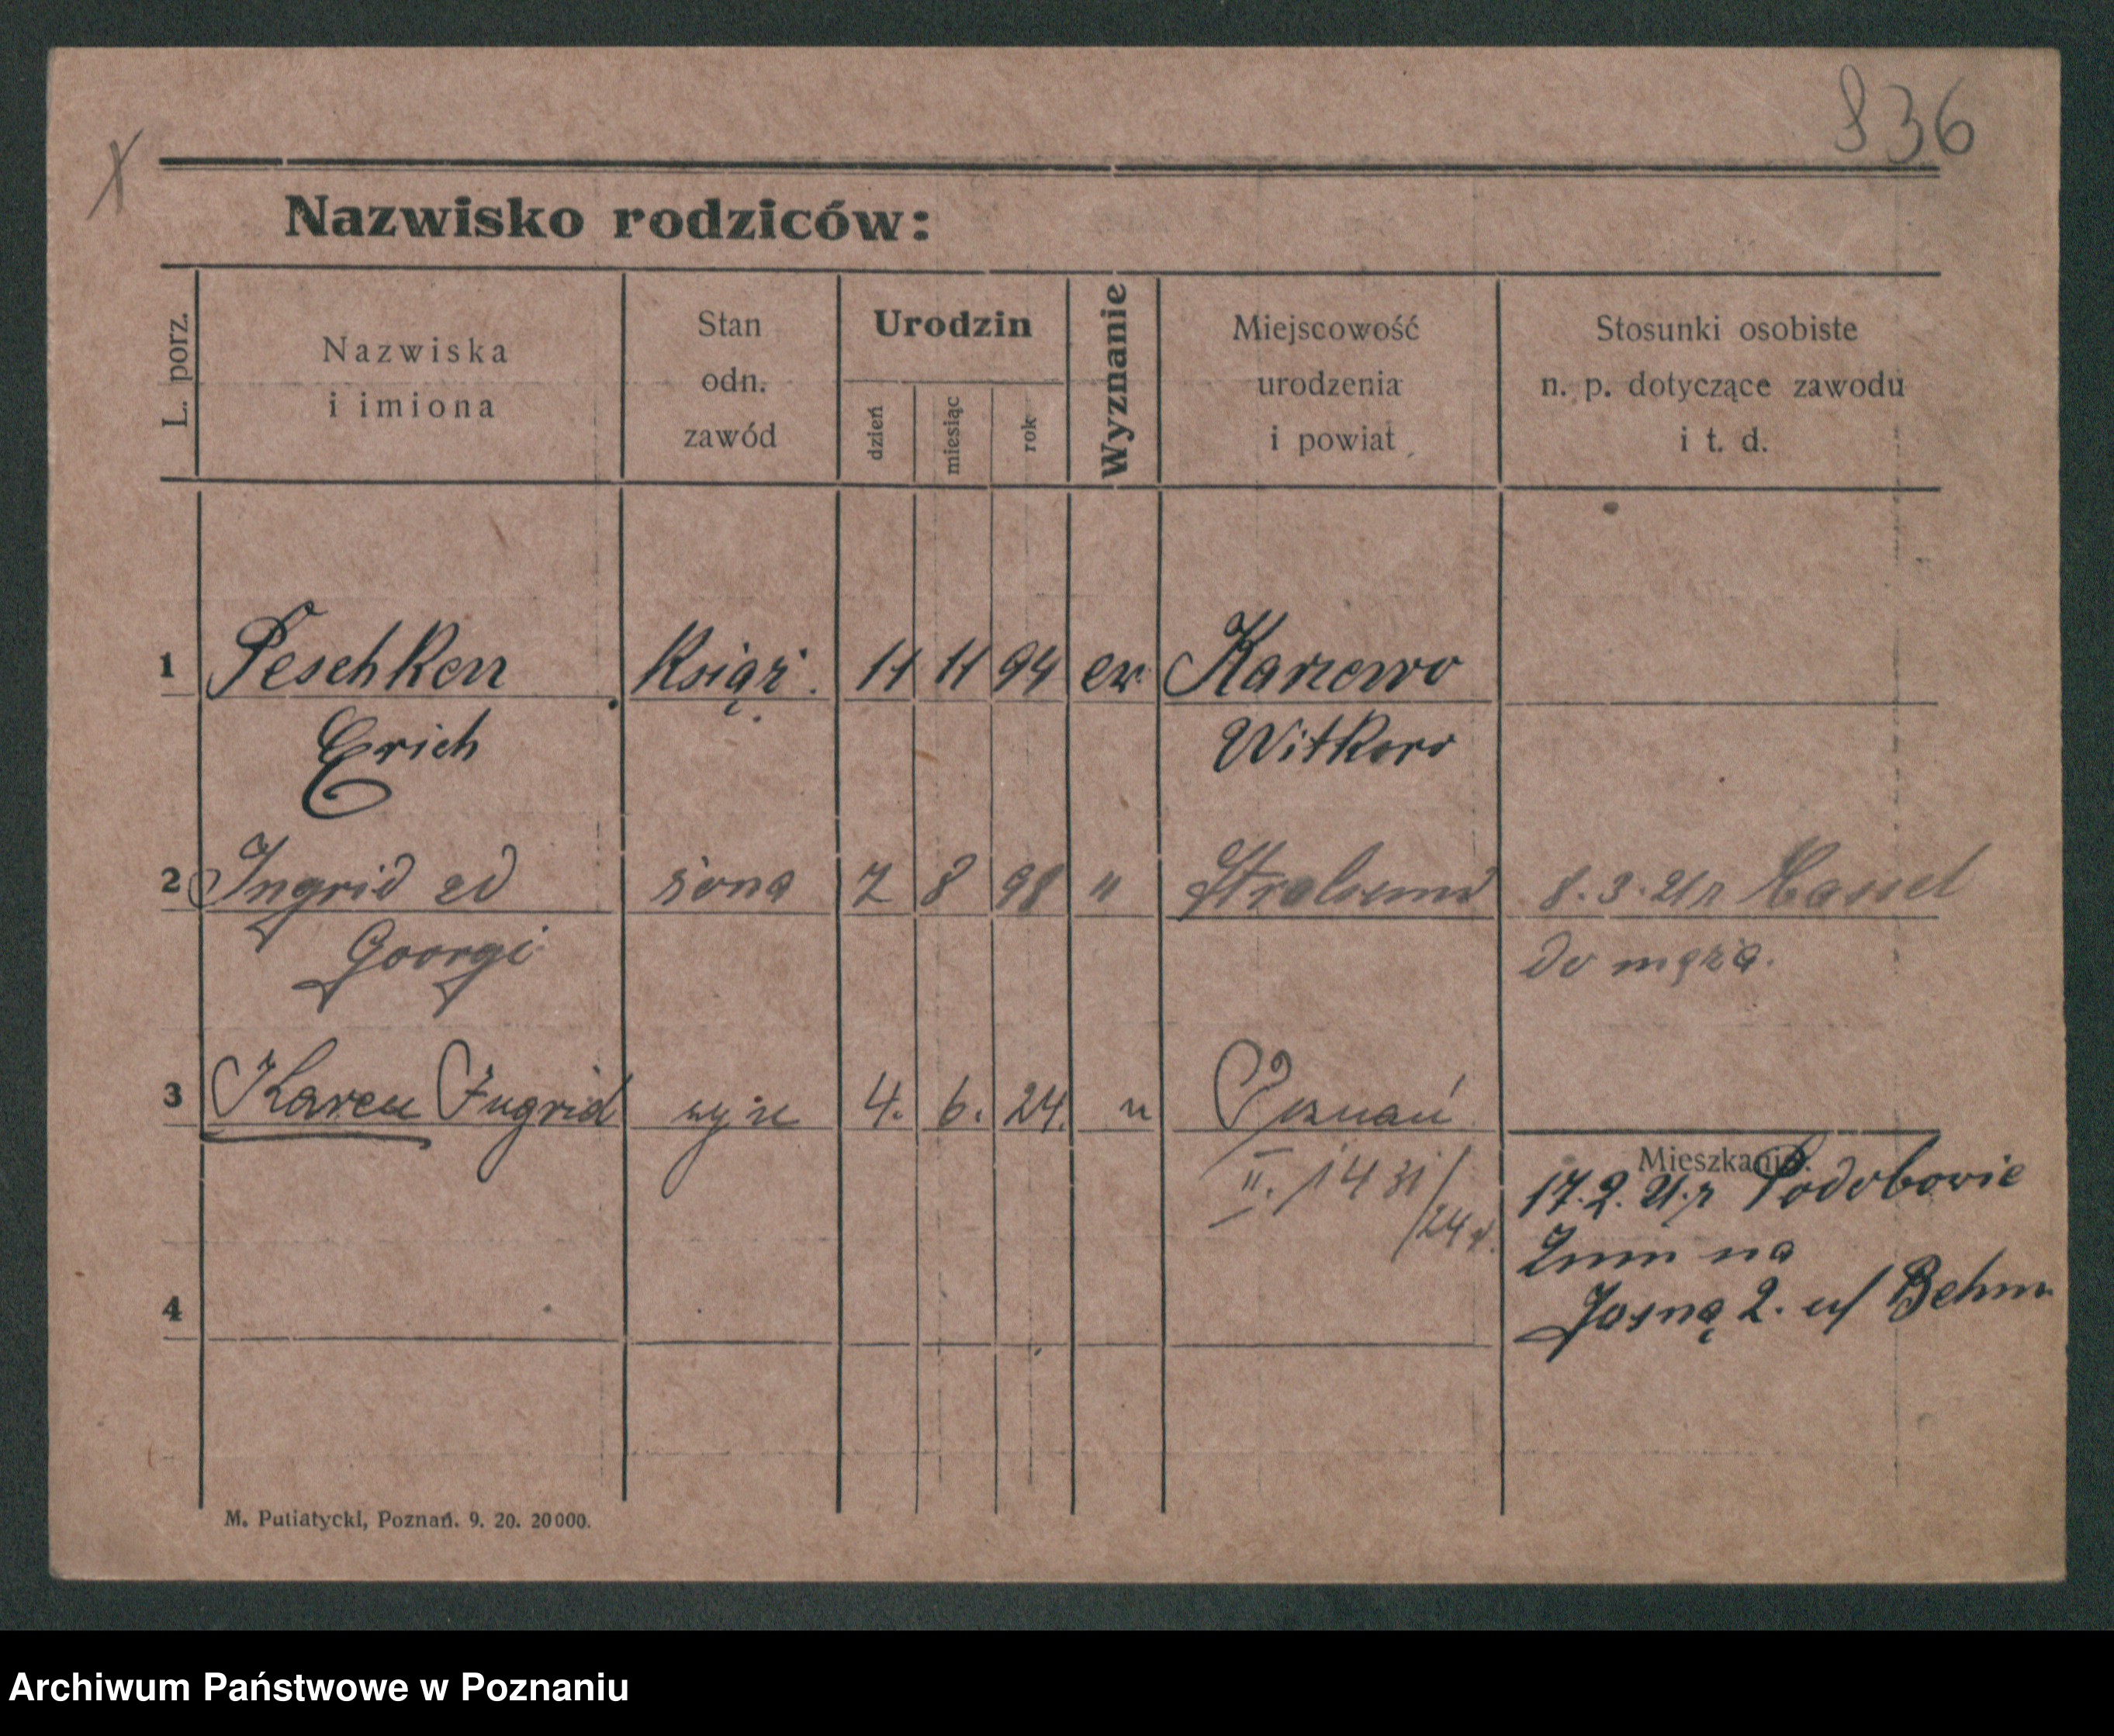 836
Nazwisko rodziców:
L. porz.
Nazwiska
i imiona
Stan
odn.
zawód
Urodzin
dzień
miesiąc
rok
Wyznanie
Miejscowość
urodzenia
i powiat
Stosunki osobiste
n. p. dotyczące zawodu
i t. d.
1 Peschken Książ. 11 11 94 ew Kanewo
Erich Witkowo
2 Ingrid zd żona 7 8 98 " Stralsund 8. 3. 21 r Kassel
Georgi do męża.
3 Karen Ingrid wyż 4. 6. 24. " Poznań
Mieszkanie:
II. 1431/24 r.
17. 2. 21. r Podobowie
Znin na
Jasną 2. u/ Behm
4
M. Putiatycki, Poznań. 9. 20. 20000.
Archiwum Państwowe w Poznaniu